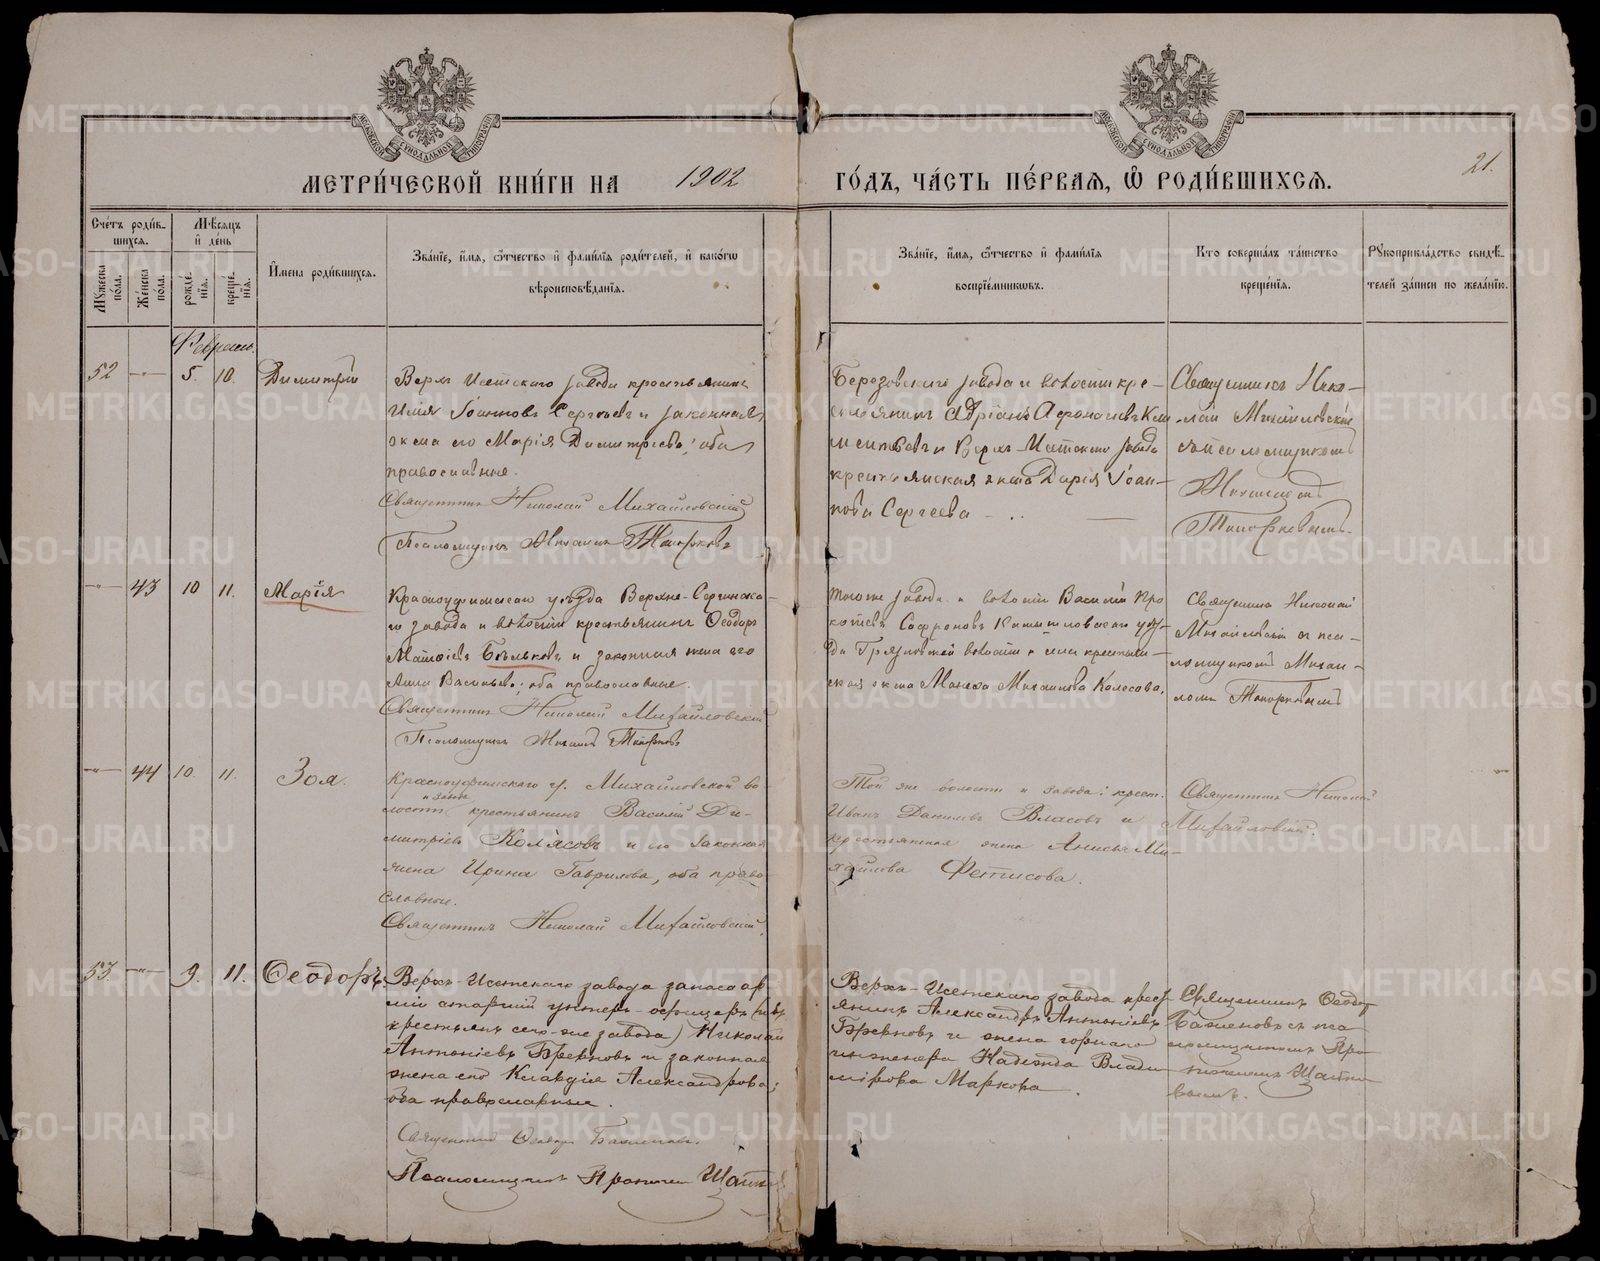 МЕТРИ́ЧЕСКОЙ КНИ́ГИ НА 1902 ГО́ДЪ, ЧА́СТЬ ПЕ́РВАЯ, Ѽ РОДИ́ВШИХСЯ.
21.
Сче́тъ роди́в-
шихся.
Мѣ́сяцъ
и де́нь
Му́жеска по́ла.
Же́нска по́ла.
рожде́-
нія.
креще́-
нія.
И́мена роди́вшихся.
Зва́ніе, и́мя, ѻ́тчество и фами́лія роди́телей, и како́гѡ
вѣроисповѣ́данія.
Зва́ніе, и́мя, ѻ́тчество и фами́лія
воспріе́мникѡвъ.
Кто соверша́лъ та́инство
креще́нія.
Рукоприкла́дство свидѣ́-
телей за́писи по жела́нію.
Февраль.
52 —"— 5. 10. Димитрій
Верх Исетскаго завода крестьянинъ
Илія Іоанновъ Сергѣевъ и законная
жена его Марія Димитріева; оба
православные.
Священникъ Николай Михайловскій
Псаломщикъ Михаилъ Топорковъ
Березовскаго завода и волости кре-
стьянинъ Адріанъ
и Верхъ-Исетскаго завода
крестьянская жена Дарія Іоан-
нова Сергѣева
Священникъ Нико-
лай Михайловскій
съ псаломщикомъ
Михаиломъ
Топорковымъ.
—"— 43 10 11. Марія
Красноуфимскаго уѣзда Верхне-Сергинска-
го завода и волости крестьянинъ Ѳеодоръ
Бѣльковъ и законная жена его
Анна Васильева; оба православные.
Священникъ Николай Михайловскій
Псаломщикъ Михаилъ Топорковъ
Того же завода и волости Василій Про
Сафроновъ Камышловскаго уѣз-
да Грязновской волости и села крестьян-
ская жена Михаилова Колесова.
Священникъ Николай
Михайловскій съ пса-
ломщикомъ Михаи-
ломъ Топорковымъ
—"— 44 10. 11. Зоя.
Красноуфимскаго у. Михайловской во
лости и завода крестьянинъ Василій Ди-
митріевъ Колясовъ и его законная
жена Ирина Гаврилова, оба право-
славные.
Священникъ Николай Михайловскій.
Той же волости и завода: крест.
Иванъ Даниловъ Власовъ и
крестьянская жена Анисья Ми-
хайлова Фетисова.
Священникъ Николай
Михайловскій.
53. —"— 9. 11. Ѳеодоръ.
Верхъ-Исетскаго завода запаса ар
міи старшій унтеръ-офицеръ (изъ
крестьянъ сего-же завода) Николай
Антоніевъ Бревновъ и законная
жена его Клавдія Александрова;
оба православные.
Священникъ Ѳеодоръ Баженовъ.
Псаломщикъ
Верхъ-Исетскаго завода крест
янинъ Александръ Антоніевъ
Бревновъ и жена горнаго
инженера Надежда Влади
мірова Маркова.
Священникъ Ѳеодоръ
Баженовъ съ пса
ломщикомъ
METRIKI.GASO-URAL.RU